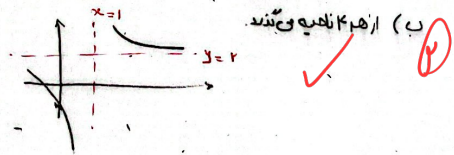 ب) از هر ۴ ناحیه می‌گذرد.
x=1
y=۲
۲